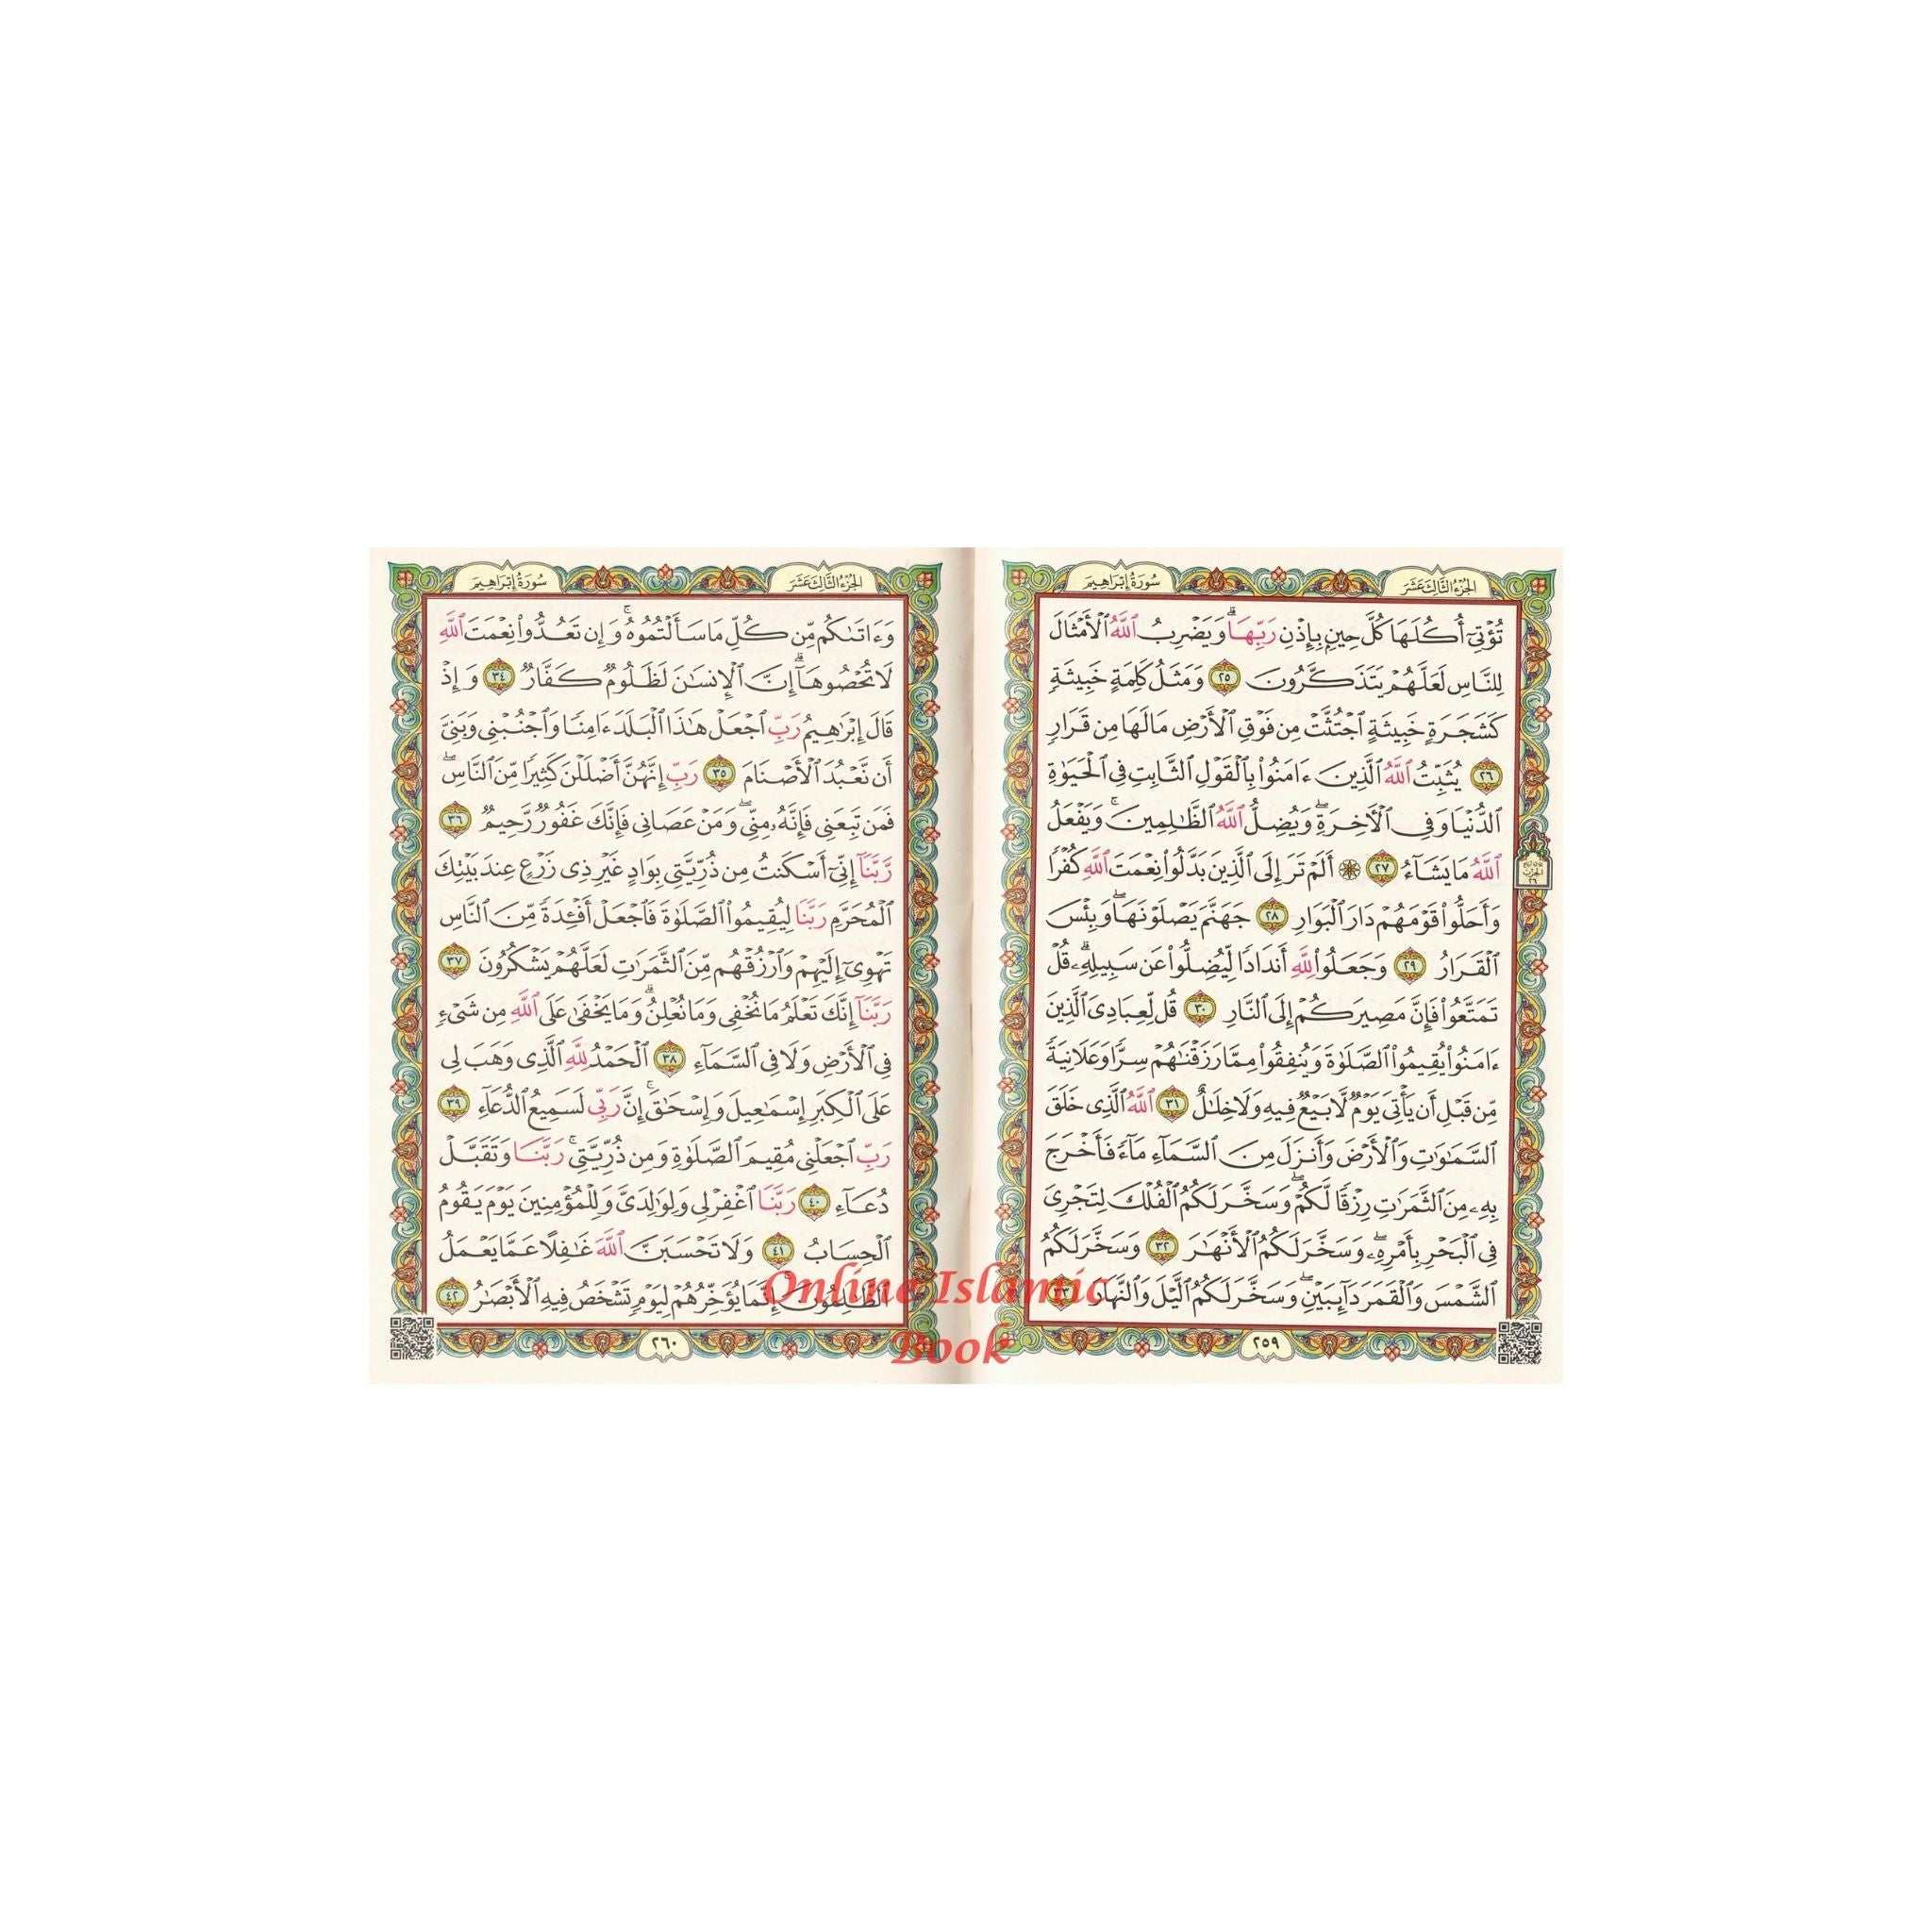 الجزء الثالث عشر
سورة إبراهيم
تُؤْتِىٓ أُكُلَهَا كُلَّ حِينٍۭ بِإِذْنِ رَبِّهَاۗ وَيَضْرِبُ ٱللَّهُ ٱلْأَمْثَالَ
لِلنَّاسِ لَعَلَّهُمْ يَتَذَكَّرُونَ ٢٥ وَمَثَلُ كَلِمَةٍ خَبِيثَةٍ
كَشَجَرَةٍ خَبِيثَةٍ ٱجْتُثَّتْ مِن فَوْقِ ٱلْأَرْضِ مَا لَهَا مِن قَرَارٍ
٢٦ يُثَبِّتُ ٱللَّهُ ٱلَّذِينَ ءَامَنُوا۟ بِٱلْقَوْلِ ٱلثَّابِتِ فِى ٱلْحَيَوٰةِ
ٱلدُّنْيَا وَفِى ٱلْـَٔاخِرَةِۖ وَيُضِلُّ ٱللَّهُ ٱلظَّـٰلِمِينَۚ وَيَفْعَلُ
ٱللَّهُ مَا يَشَآءُ ٢٧ ۞ أَلَمْ تَرَ إِلَى ٱلَّذِينَ بَدَّلُوا۟ نِعْمَتَ ٱللَّهِ كُفْرًا
وَأَحَلُّوا۟ قَوْمَهُمْ دَارَ ٱلْبَوَارِ ٢٨ جَهَنَّمَ يَصْلَوْنَهَاۖ وَبِئْسَ
ٱلْقَرَارُ ٢٩ وَجَعَلُوا۟ لِلَّهِ أَندَادًا لِّيُضِلُّوا۟ عَن سَبِيلِهِۦۗ قُلْ
تَمَتَّعُوا۟ فَإِنَّ مَصِيرَكُمْ إِلَى ٱلنَّارِ ٣٠ قُل لِّعِبَادِىَ ٱلَّذِينَ
ءَامَنُوا۟ يُقِيمُوا۟ ٱلصَّلَوٰةَ وَيُنفِقُوا۟ مِمَّا رَزَقْنَـٰهُمْ سِرًّا وَعَلَانِيَةً
مِّن قَبْلِ أَن يَأْتِىَ يَوْمٌ لَّا بَيْعٌ فِيهِ وَلَا خِلَـٰلٌ ٣١ ٱللَّهُ ٱلَّذِى خَلَقَ
ٱلسَّمَـٰوَٰتِ وَٱلْأَرْضَ وَأَنزَلَ مِنَ ٱلسَّمَآءِ مَآءً فَأَخْرَجَ
بِهِۦ مِنَ ٱلثَّمَرَٰتِ رِزْقًا لَّكُمْۖ وَسَخَّرَ لَكُمُ ٱلْفُلْكَ لِتَجْرِىَ
فِى ٱلْبَحْرِ بِأَمْرِهِۦۖ وَسَخَّرَ لَكُمُ ٱلْأَنْهَـٰرَ ٣٢ وَسَخَّرَ لَكُمُ
ٱلشَّمْسَ وَٱلْقَمَرَ دَآئِبَيْنِۖ وَسَخَّرَ لَكُمُ ٱلَّيْلَ وَٱلنَّهَارَ ٣٣
٢٥٩
الجزء الثالث عشر
سورة إبراهيم
وَءَاتَىٰكُم مِّن كُلِّ مَا سَأَلْتُمُوهُۚ وَإِن تَعُدُّوا۟ نِعْمَتَ ٱللَّهِ
لَا تُحْصُوهَآۗ إِنَّ ٱلْإِنسَـٰنَ لَظَلُومٌ كَفَّارٌ ٣٤ وَإِذْ
قَالَ إِبْرَٰهِيمُ رَبِّ ٱجْعَلْ هَـٰذَا ٱلْبَلَدَ ءَامِنًا وَٱجْنُبْنِى وَبَنِىَّ
أَن نَّعْبُدَ ٱلْأَصْنَامَ ٣٥ رَبِّ إِنَّهُنَّ أَضْلَلْنَ كَثِيرًا مِّنَ ٱلنَّاسِۖ
فَمَن تَبِعَنِى فَإِنَّهُۥ مِنِّىۖ وَمَنْ عَصَانِى فَإِنَّكَ غَفُورٌ رَّحِيمٌ ٣٦
رَّبَّنَآ إِنِّىٓ أَسْكَنتُ مِن ذُرِّيَّتِى بِوَادٍ غَيْرِ ذِى زَرْعٍ عِندَ بَيْتِكَ
ٱلْمُحَرَّمِ رَبَّنَا لِيُقِيمُوا۟ ٱلصَّلَوٰةَ فَٱجْعَلْ أَفْـِٔدَةً مِّنَ ٱلنَّاسِ
تَهْوِىٓ إِلَيْهِمْ وَٱرْزُقْهُم مِّنَ ٱلثَّمَرَٰتِ لَعَلَّهُمْ يَشْكُرُونَ ٣٧
رَبَّنَآ إِنَّكَ تَعْلَمُ مَا نُخْفِى وَمَا نُعْلِنُۗ وَمَا يَخْفَىٰ عَلَى ٱللَّهِ مِن شَىْءٍ
فِى ٱلْأَرْضِ وَلَا فِى ٱلسَّمَآءِ ٣٨ ٱلْحَمْدُ لِلَّهِ ٱلَّذِى وَهَبَ لِى
عَلَى ٱلْكِبَرِ إِسْمَـٰعِيلَ وَإِسْحَـٰقَۚ إِنَّ رَبِّى لَسَمِيعُ ٱلدُّعَآءِ ٣٩
رَبِّ ٱجْعَلْنِى مُقِيمَ ٱلصَّلَوٰةِ وَمِن ذُرِّيَّتِىۚ رَبَّنَا وَتَقَبَّلْ
دُعَآءِ ٤٠ رَبَّنَا ٱغْفِرْ لِى وَلِوَٰلِدَىَّ وَلِلْمُؤْمِنِينَ يَوْمَ يَقُومُ
ٱلْحِسَابُ ٤١ وَلَا تَحْسَبَنَّ ٱللَّهَ غَـٰفِلًا عَمَّا يَعْمَلُ
ٱلظَّـٰلِمُونَۚ إِنَّمَا يُؤَخِّرُهُمْ لِيَوْمٍ تَشْخَصُ فِيهِ ٱلْأَبْصَـٰرُ ٤٢
٢٦٠
Online Islamic
Book